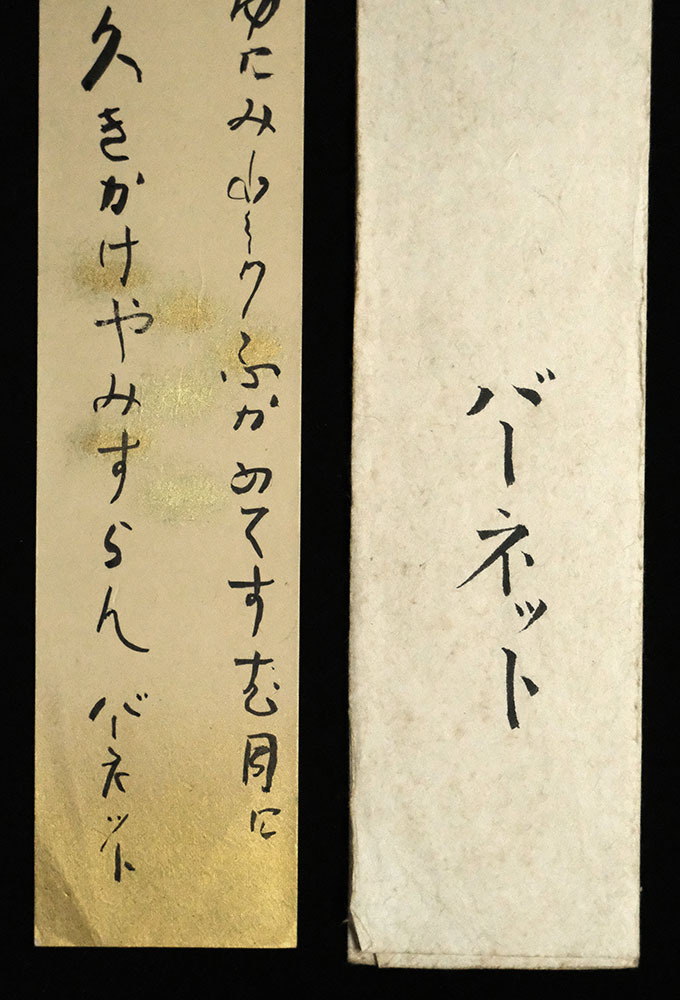 バーネット
ふかめてすむ月に
久きかけやみすらん バーネット